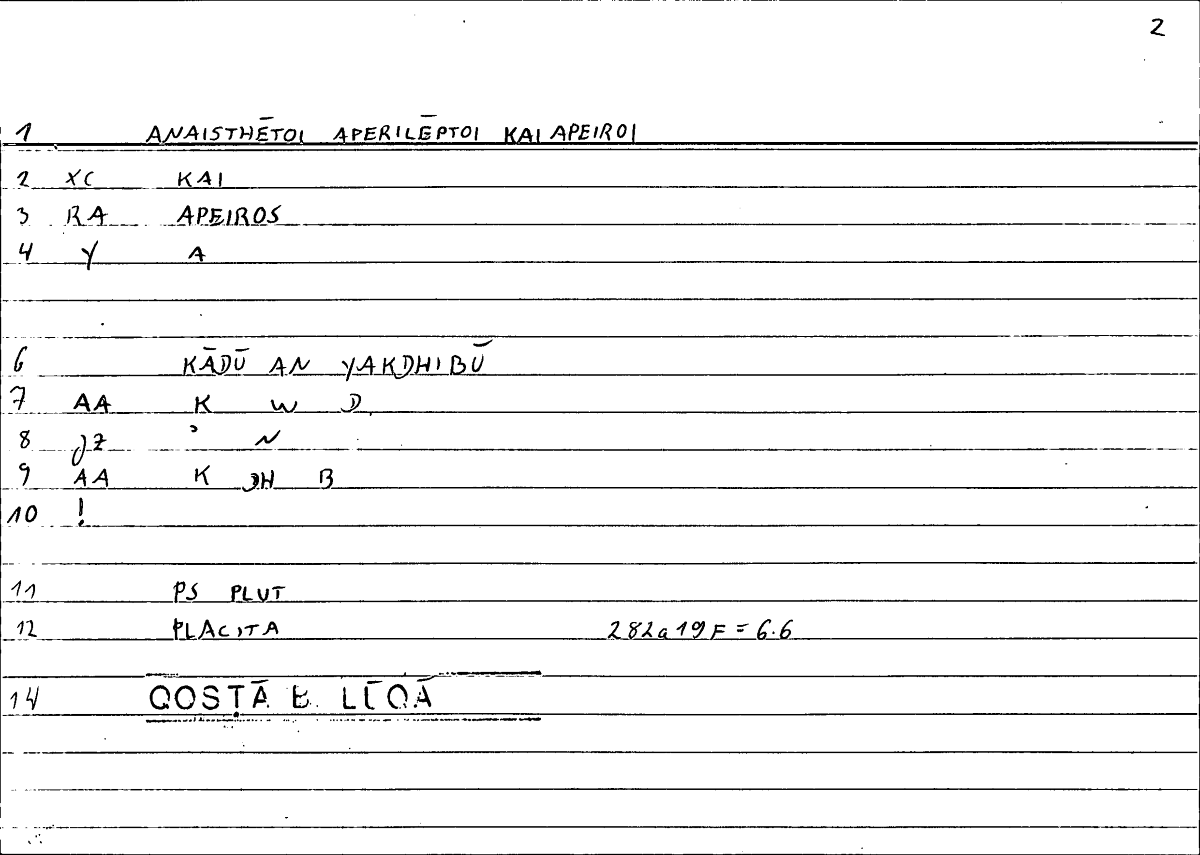 2
1 ANAISTHĒTOI APERILĒPTOI KAI APEIROI
2 XC KAI
3 RA APEIROS
4 Y A
6 KĀDŪ AN YAKDHIBŪ
7 AA K W D
8 JZ ʾ N
9 AA K DH B
10 !
11 PS PLUT
12 PLACITA 282a19F = 6.6
14 QOSṬĀ B. LŪQĀ